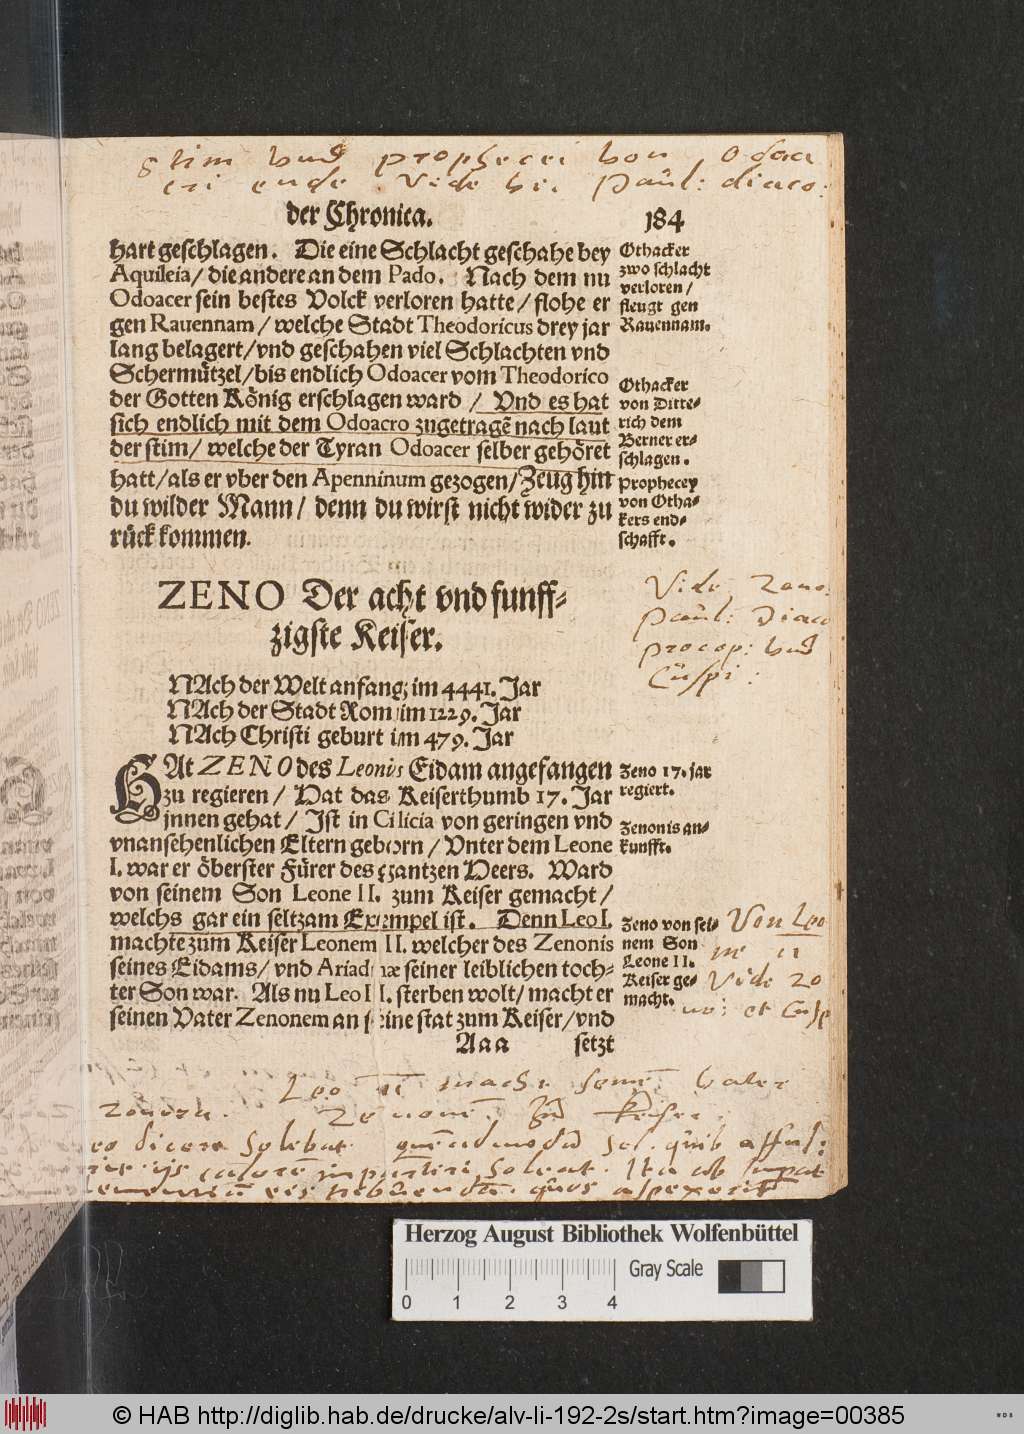 stim vnd prophecei von Odoa
cri ende. Vide bei Paul: diaco:
der Chronica. 184
hart geschlagen. Die eine Schlacht geschahe bey
Aquileia/ die andere an dem Pado. Nach dem nu
Odoacer sein bestes Volck verloren hatte/ flohe er
gen Rauennam/ welche Stadt Theodoricus drey jar
lang belagert/ vnd geschahen viel Schlachten vnd
Schermützel/ bis endlich Odoacer vom Theodorico
der Gotten König erschlagen ward/ Vnd es hat
sich endlich mit dem Odoacro zugetragē nach laut
der stim/ welche der Tyran Odoacer selber gehöret
hatt/ als er vber den Apenninum gezogen/ Zeug hin
du wilder Mann/ denn du wirst nicht wider zu
rück kommen.
Othacker
zwo schlacht
verloren/
fleugt gen
Rauennam.
Othacker
von Ditte-
rich dem
Berner er-
schlagen.
Prophecey
von Otha-
kers end-
schafft.
ZENO Der acht vnd funff-
zigste Keiser.
Vide Zono:
Paul: Diaco
procop: vnd
Cuspi:
NAch der Welt anfang im 4441. Jar
NAch der Stadt Rom im 1229. Jar
NAch Christi geburt im 479. Jar
HAt ZENO des Leonis Eidam angefangen
zu regieren/ Hat das Keiserthumb 17. Jar
jnnen gehat/ Ist in Cilicia von geringen vnd
vnansehenlichen Eltern geborn/ Vnter dem Leone
I. war er öberster Fürer des gantzen Heers. Ward
von seinem Son Leone II. zum Keiser gemacht/
welchs gar ein seltzam Exempel ist. Denn Leo I.
machte zum Keiser Leonem II. welcher des Zenonis
seines Eidams/ vnd Ariadnæ seiner leiblichen toch-
ter Son war. Als nu Leo II. sterben wolt/ macht er
seinen Vater Zenonem an seine stat zum Keiser/ vnd
Aaa setzt
Zeno 17. jar
regiert.
Zenonis an-
kunfft.
Zeno von sei-
nem Son
Leone II.
Keiser ge-
macht.
Von Leo
ne II
Vide Zo
no: et Cusp
Leo II macht seinē vater
Zenonē zū Keiser.
dicere solebat quēadmodū sol quib
calorē impartiri soleat. Ita
eis quos aspexerit
Herzog August Bibliothek Wolfenbüttel
Gray Scale
0 1 2 3 4
© HAB http://diglib.hab.de/drucke/alv-li-192-2s/start.htm?image=00385